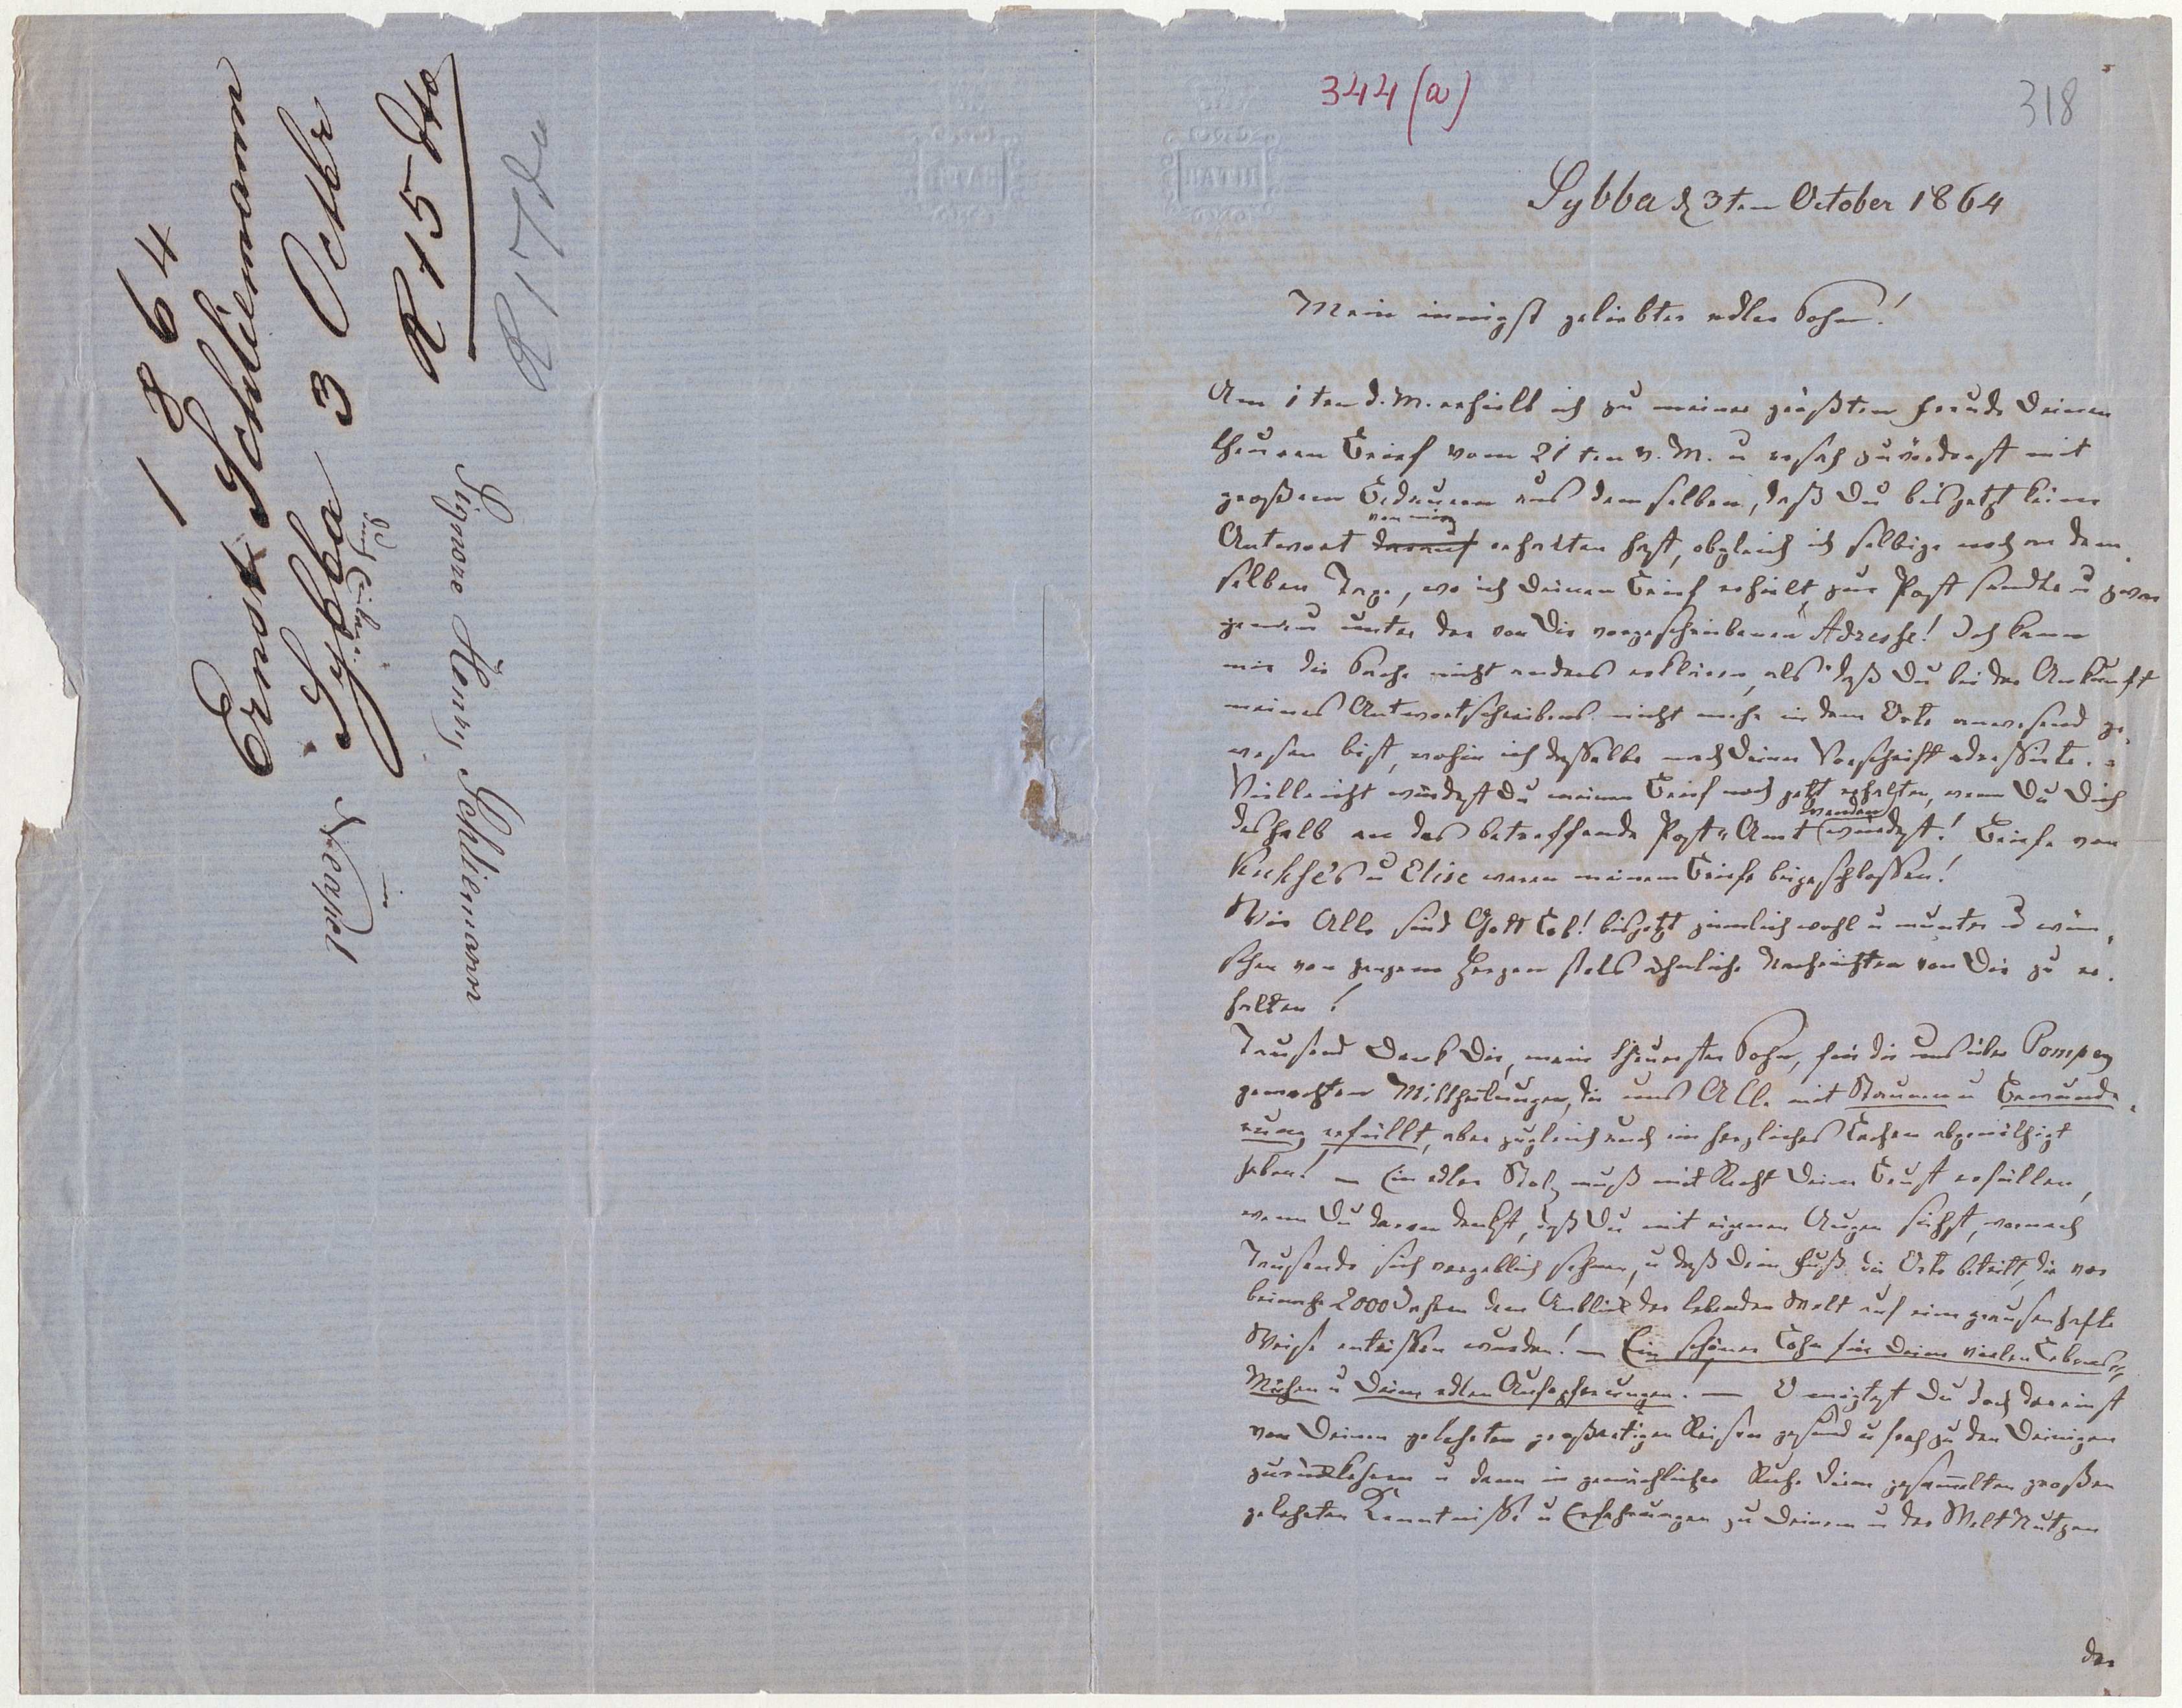 1864
Ernst Schliemann
Sybba 3 Octbr
R 15 dto
R 17 do
Signore Henry Schliemann
durch Einlage
in
Neapel
344 (a)
318
Sybba d 3ten October 1864
Mein innigst geliebter edler Sohn!
Am 1ten d. M. erhielt ich zu meiner größten Freude Deinen
theuren Brief vom 21ten v. M. u ersah zuvörderst mit
großem Bedauern aus demselben, daß Du bis jetzt keine
von mir
Antwort darauf erhalten hast, obgleich ich selbige noch an dem
selben Tage, wo ich Deinen Brief erhielt, zur Post sandte u zwar
genau unter der von Dir vorgeschriebenen Adresse! Ich kann
mir die Sache nicht anders erklären, als daß Du bei der Ankunft
meines Antwortschreibens nicht mehr in dem Orte anwesend ge-
wesen bist, wohin ich dasselbe nach Deiner Vorschrift adressirte. -
Vielleicht würdest Du meinen Brief noch jetzt erhalten, wenn Du Dich
wenden
deshalb an das betreffende Post-Amt würdest! Briefe von
Kuhse's u Elise waren meinem Briefe beigeschlossen!
Wir Alle sind Gott Lob! bis jetzt ziemlich wohl u munter u wün-
schen von ganzem Herzen stets ähnliche Nachrichten von Dir zu er-
halten!
Tausend Dank Dir, mein theuerster Sohn, für die uns über Pompey
gemachten Mittheilungen, die uns Alle mit Staunen u Bewunde-
rung erfüllt, aber zugleich auch ein herzliches Lachen abgenöthigt
haben! — Ein edler Stolz muß mit Recht Deine Brust erfüllen,
wenn Du daran denkst, daß Du mit eigenen Augen siehst, wornach
Tausende sich vergeblich sehnen, u daß Dein Fuß die Orte betritt, die vor
beinahe 2000 Jahren dem Anblick der lebenden Welt auf eine grausenhafte
Weise entrissen wurden! — Ein schöner Lohn für Deine vielen Lebens-
Mühen u Deine edlen Aufopferungen. — O mögtest Du doch dereinst
von Deinen gelehrten großartigen Reisen gesund u froh zu den Deinigen
zurückkehren u dann in gemächlicher Ruhe Deine gesammelten großen
gelehrten Kenntnisse u Erfahrungen zu Deinem u der Welt Nutzen
der